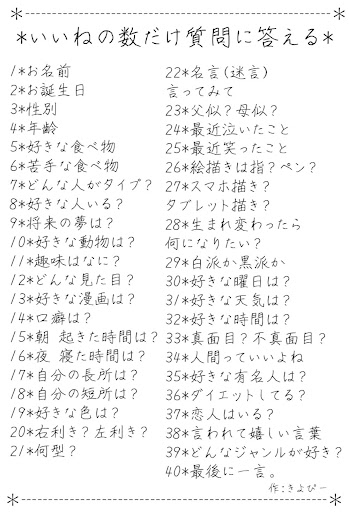 *いいねの数だけ質問に答える*
1*お名前
2*お誕生日
3*性別
4*年齢
5*好きな食べ物
6*苦手な食べ物
7*どんな人がタイプ?
8*好きな人いる?
9*将来の夢は?
10*好きな動物は?
11*趣味はなに?
12*どんな見た目?
13*好きな漫画は?
14*口癖は?
15*朝 起きた時間は?
16*夜 寝た時間は?
17*自分の長所は?
18*自分の短所は?
19*好きな色は?
20*右利き?左利き?
21*何型?
22*名言(迷言)
言ってみて
23*父似?母似?
24*最近泣いたこと
25*最近笑ったこと
26*絵描きは指?ペン?
27*スマホ描き?
タブレット描き?
28*生まれ変わったら
何になりたい?
29*白派か黒派か
30*好きな曜日は?
31*好きな天気は?
32*好きな時間は?
33*真面目?不真面目?
34*人間っていいよね
35*好きな有名人は?
36*ダイエットしてる?
37*恋人はいる?
38*言われて嬉しい言葉
39*どんなジャンルが好き?
40*最後に一言。
作:きよぴー